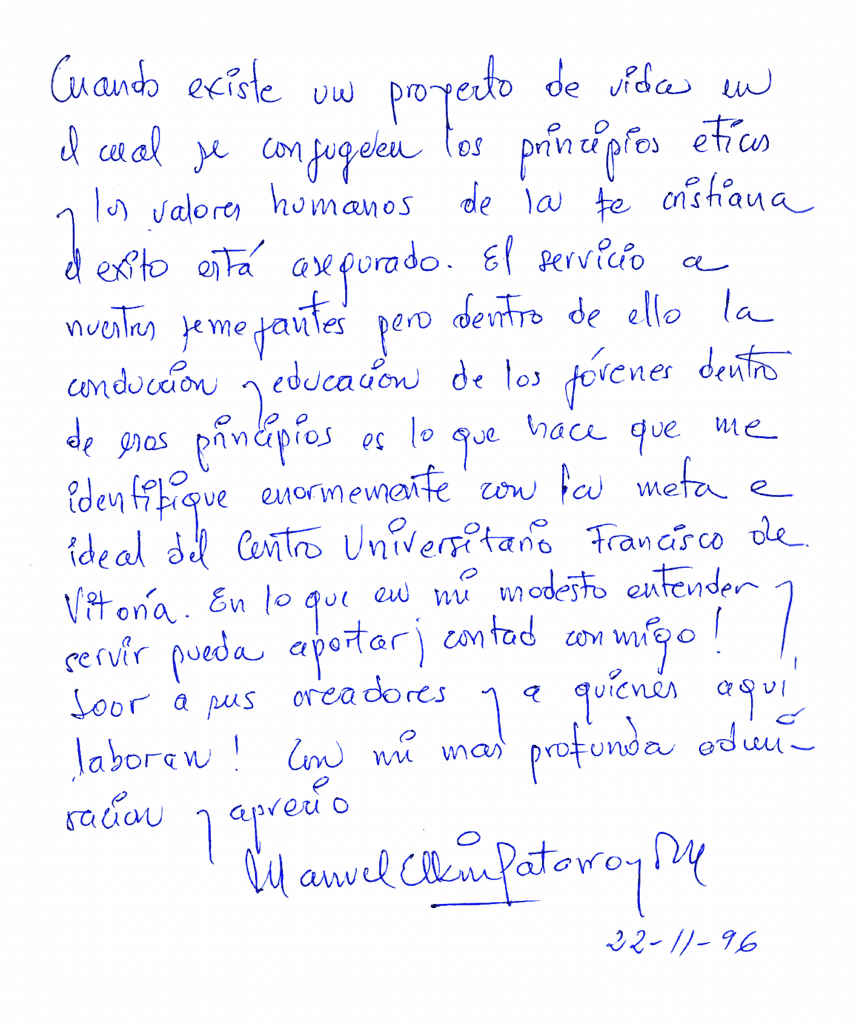 Cuando existe un proyecto de vida en
el cual se conjugen los principios eticos
y los valores humanos de la fe cristiana
el exito está asegurado. El servicio a
nuestros semejantes pero dentro de ello la
conduccion y educacion de los jóvenes dentro
de esos principios es lo que hace que me
identifique enormemente con la meta e
ideal del Centro Universitario Francisco de
Vitoria. En lo que en mi modesto entender y
servir pueda aportar ¡ contad conmigo!
Loor a sus creadores y a quienes aquí
laboran! Con mi mas profunda admi-
racion y aprecio
Manuel Elkin Patarroyo M
22-11-96